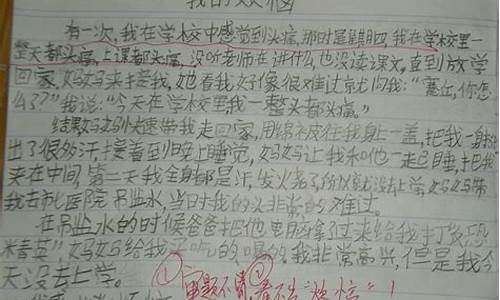 我的烦恼
有一次,我在学校中感觉到头痛,那时是星期四,我在学校里一
整天都头痛,上课都头痛,没听老师在讲什么也没读课文,直到放学
回家,妈妈来接我,她看我好像很难过就问我:“  你怎
么了?”我说:“今天在学校里,我一整天都头痛。”
结果妈妈快速带我走回家,用绵被往我身上一盖,把我一身
出了很多汗,接着到晚上睡觉,妈妈让我和他一起睡,把我
夹在中间,第二天我全身都是汗,发火烧了所以就没去上学,妈妈带
我去市医院吊盐水,当时我的头非常的难过。
在吊盐水的时候爸爸把他 电脑拿了过来给我打
妈妈给我买吃的喝的,我非常高兴,但是我今
天没去上学。
①审题不清,②看不出“烦恼”!